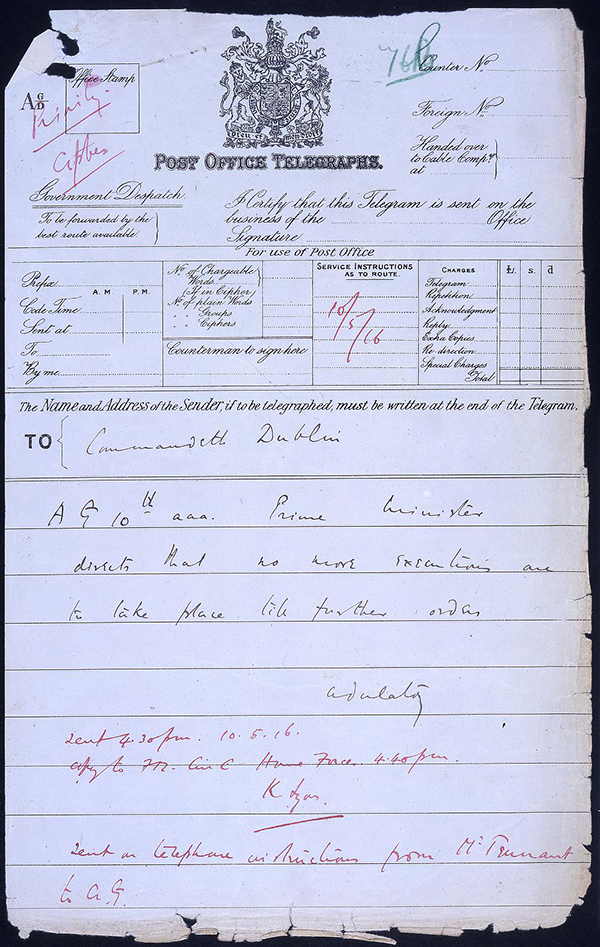 76
Office Stamp
Counter No
AG/D
Priority
Foreign No
Cipher
Handed over
to Cable Compy
at
DIEU ET MON DROIT
POST OFFICE TELEGRAPHS.
Government Despatch.
To be forwarded by the
best route available
I Certify that this Telegram is sent on the
business of the Office
Signature
For use of Post Office
Prefix
A M P M
Code Time
Sent at
To
By me
No of Chargeable
Words
(If in Cipher)
No of plain Words
" " Groups
" " Ciphers
Counterman to sign here
SERVICE INSTRUCTIONS
AS TO ROUTE.
10/5/16
CHARGES £ s. d
Telegram
Repetition
Acknowledgment
Reply
Extra Copies
Re-direction
Special Charges
Total
The Name and Address of the Sender, if to be telegraphed, must be written at the end of the Telegram.
TO Commandeth Dublin
A G 10th aaa. Prime Minister
directs that no more executions are
to take place till further orders
adulatory
Sent 4.30 pm. 10.5.16.
copy to FM. C in C Home Forces 4.40 pm.
Sent on telephone instructions from Mr Tennant
to A.G.